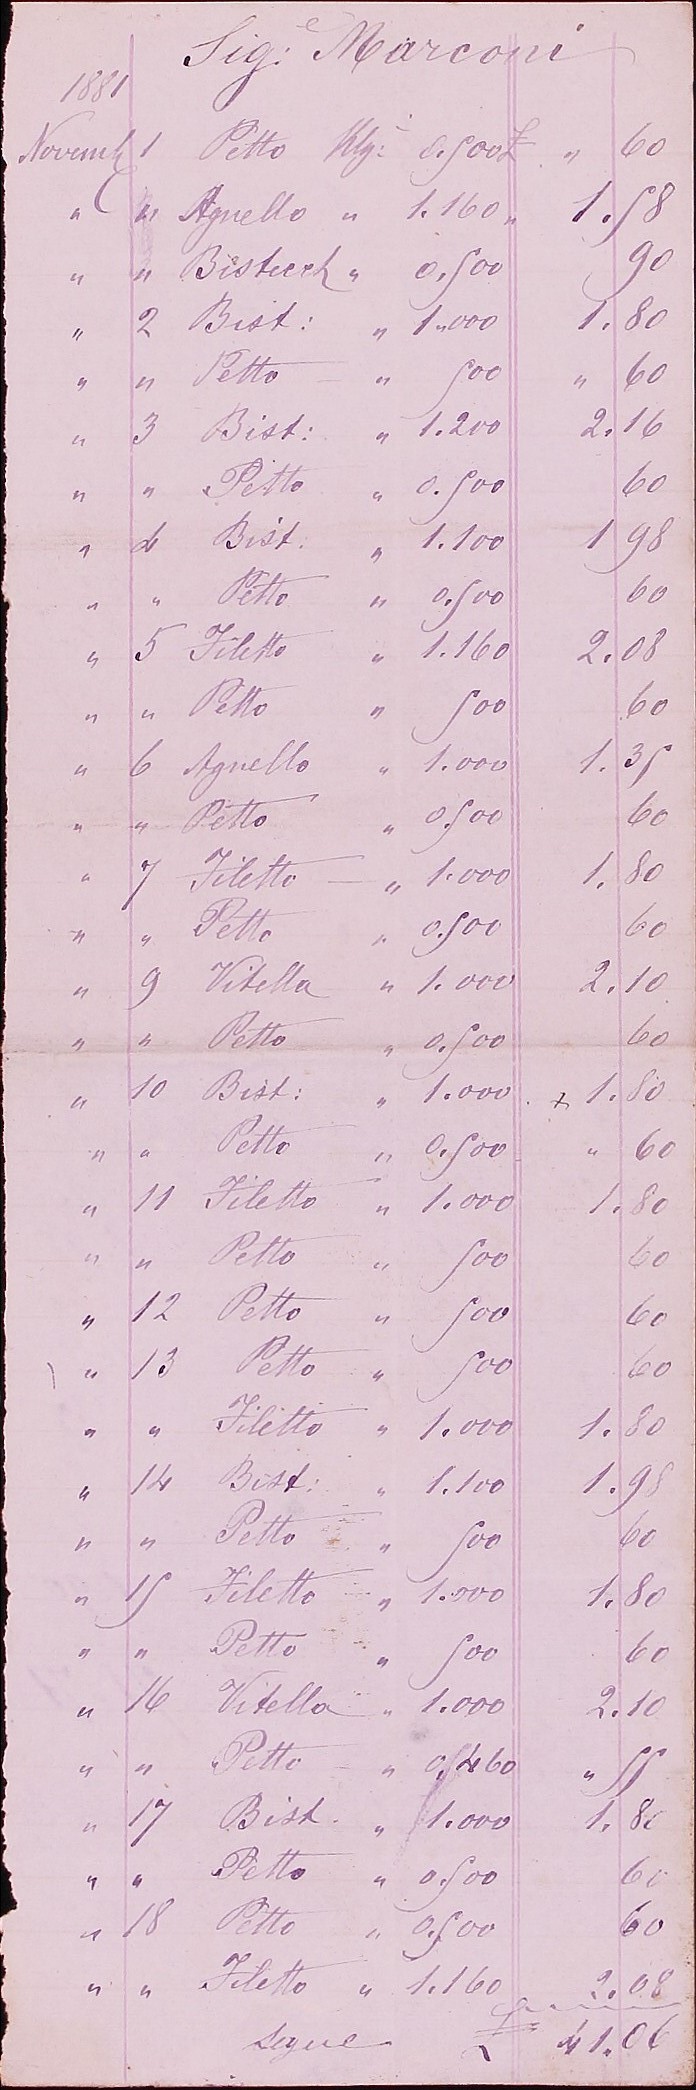 Sig:e Marconi
1881
Novemb 1 Petto Klg: 0.500 £ " 60
" " Agnello " 1.160 " 1.58
" " Bistecch " 0.500 90
" 2 Bist: " 1.000 1.80
" " Petto — " 500 " 60
" 3 Bist: " 1.200 2.16
" " Petto " 0.500 60
" 4 Bist. " 1.100 1 98
" " Petto " 0.500 60
" 5 Filetto " 1.160 2.08
" " Petto " 500 60
" 6 Agnello " 1.000 1.35
" " Petto " 0.500 60
" 7 Filetto — " 1.000 1.80
" " Petto " 0.500 60
" 9 Vitella " 1.000 2.10
" " Petto " 0.500 60
" 10 Bist: " 1.000 + 1.80
" " Petto " 0.500 " 60
" 11 Filetto " 1.000 1.80
" " Petto " 500 60
" 12 Petto " 500 60
" 13 Petto " 500 60
" " Filetto " 1.000 1.80
" 14 Bist: " 1.100 1.98
" " Petto " 500 60
" 15 Filetto " 1.000 1.80
" " Petto " 500 60
" 16 Vitella " 1.000 2.10
" " Petto " 0.460 " 55
" 17 Bist. " 1.000 1.80
" " Petto " 0.500 60
" 18 Petto " 0.500 60
" " Filetto " 1.160 2.08
Segue £ 41.06